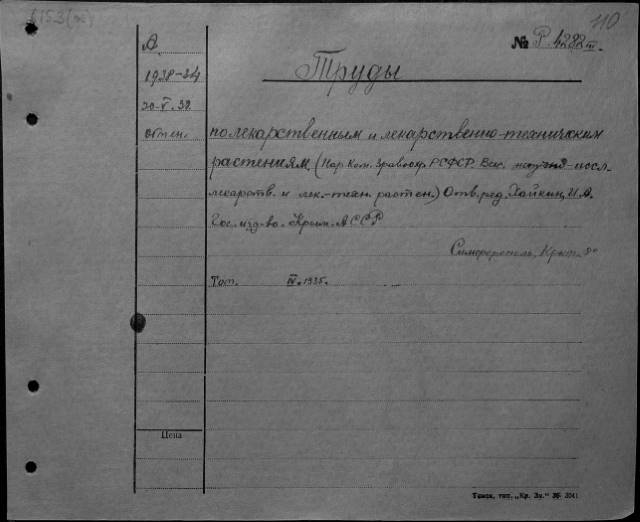 110
№ Р. 4282 III.
А
Труды
1938-34
20-V. 38
по лекарственным и лекарственно-техническим
растениям (Нар. Ком. Здравоохр. РСФСР. Все. научн-иссл.
лекарств. и лек.-техн. растен.) Отв. ред. Хайкин, И.А.
Гос. изд-во. Крым. АССР
Симферополь, Крыт.
Том. IV. 1935.
Цена
Томск, тип. „Кр. Зн."